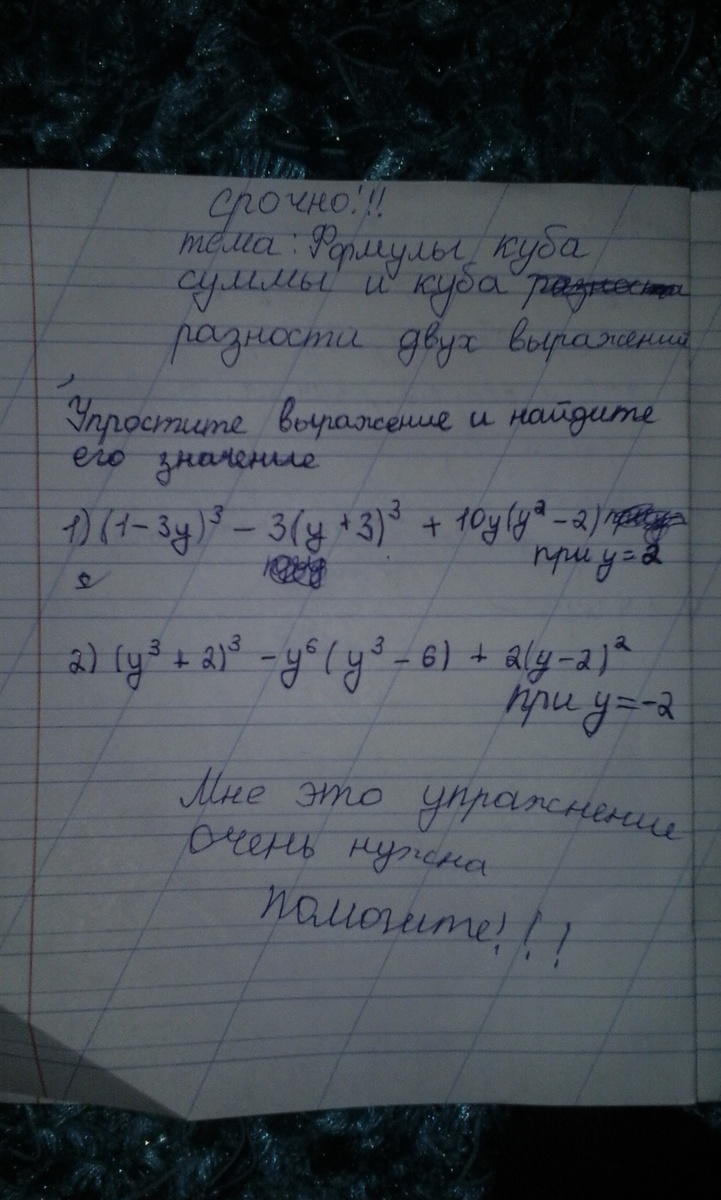 срочно!!!
тема: Формулы куба
суммы и куба разности
разности двух выражений
Упростите выражение и найдите
его значение
1) (1 - 3y)³ - 3(y + 3)³ + 10y(y² - 2)
при y = 2
2) (y³ + 2)³ - y⁶(y³ - 6) + 2(y - 2)²
при y = -2
Мне это упражнение
очень нужна
Помогите!!!